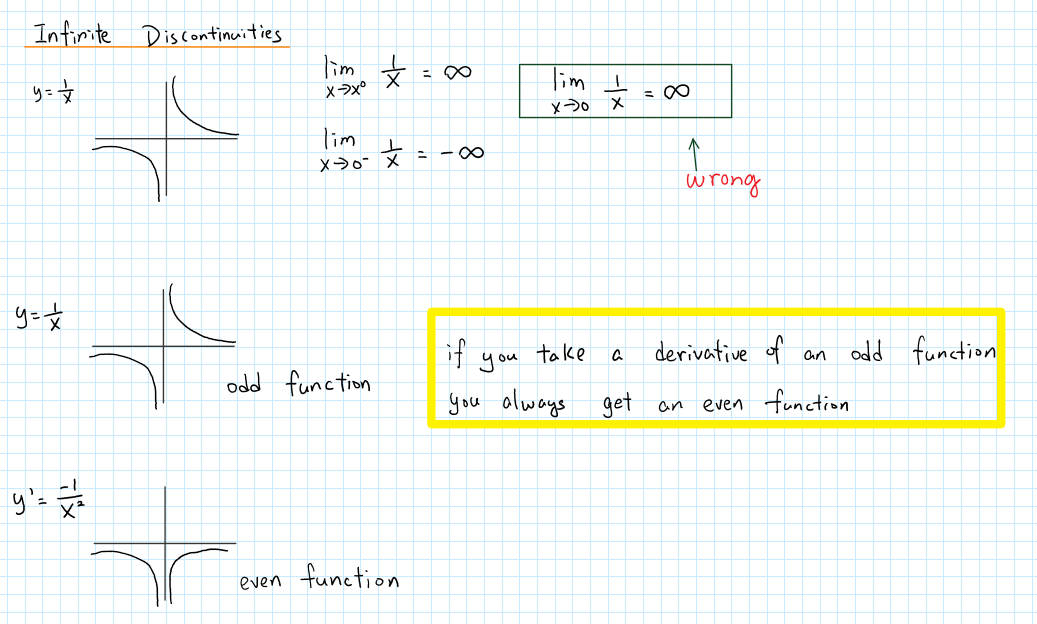 Infinite Discontinuities
y = 1/x
lim x→x⁰ 1/x = ∞
lim x→0 1/x = ∞
lim x→0⁻ 1/x = -∞
wrong
y = 1/x
odd function
if you take a derivative of an odd function
you always get an even function
y' = -1/x²
even function